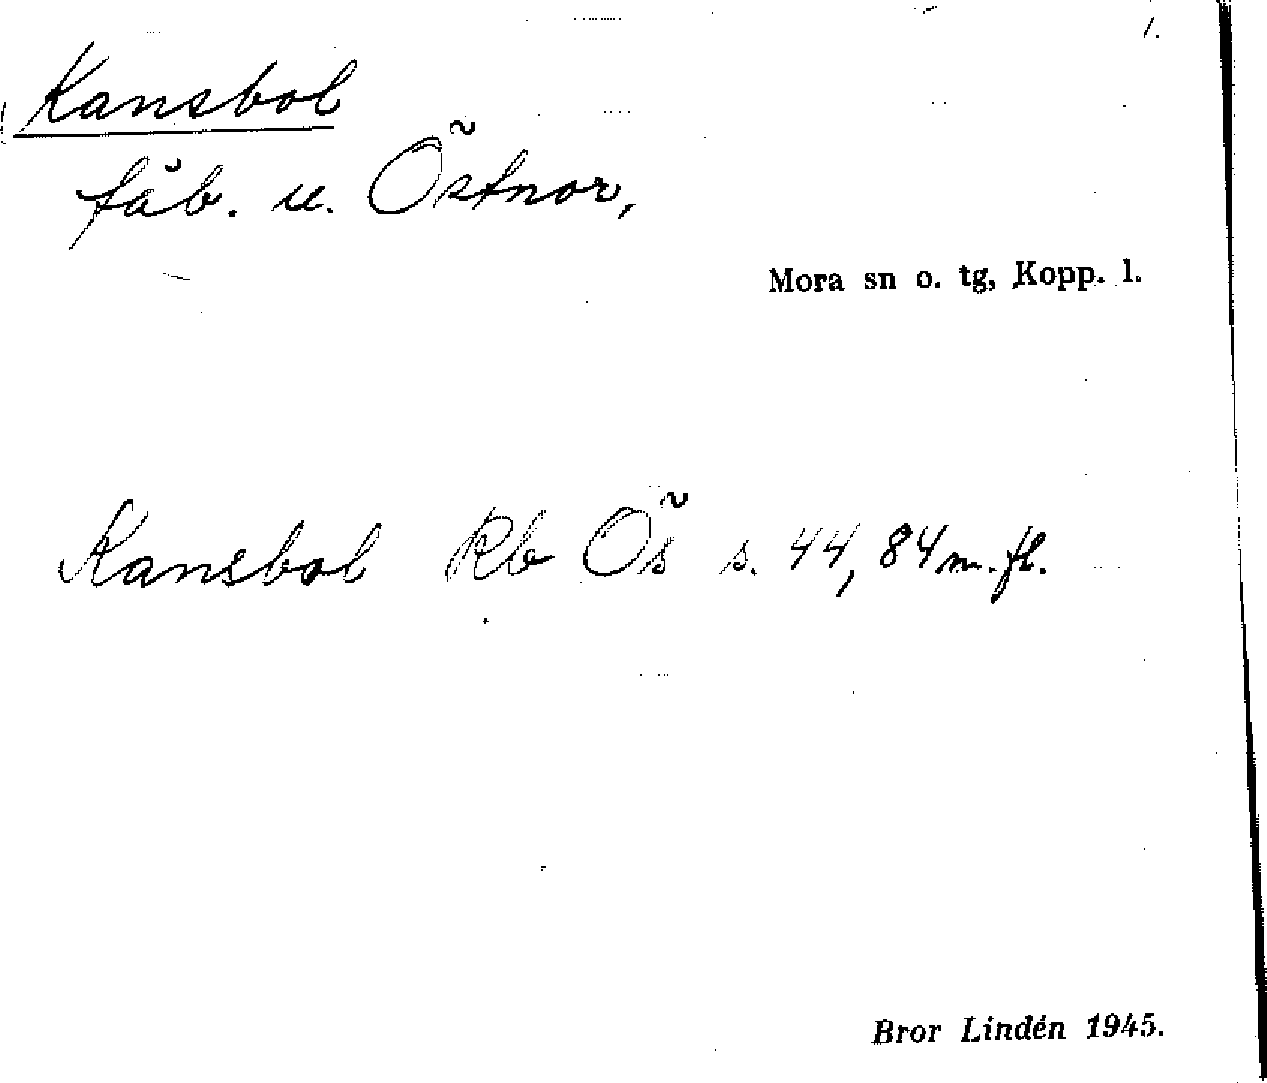 1.
Kansbol
fäb. u. Östnor,
Mora sn o. tg, Kopp. l.
Kansbol Rb Ös s. 44, 84 m. fl.
Bror Lindén 1945.